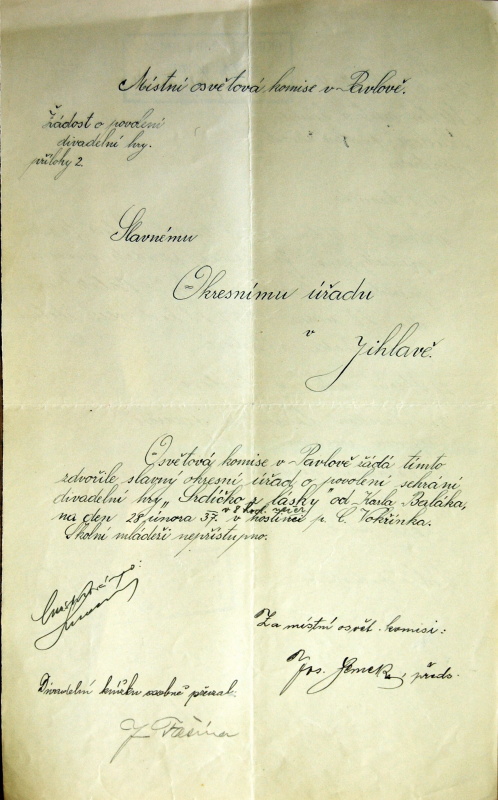 Místní osvětová komise v Pavlově.
Žádost o povolení
divadelní hry.
přílohy 2
Slavnému
Okresnímu úřadu
v
Jihlavě.
Osvětová komise v Pavlově žádá tímto
zdvořile slavný okresní úřad o povolení sehrání
divadelní hry „Srdíčko z lásky" od Karla Baláka,
v 8 hod. večer
na den 28 února 37. v hostinci p. C. Vokřínka.
Školní mládeži nepřístupno.
Za místní osvět. komisi:
Jos. předs.
Divadelní knížku osobně převzal:
J.